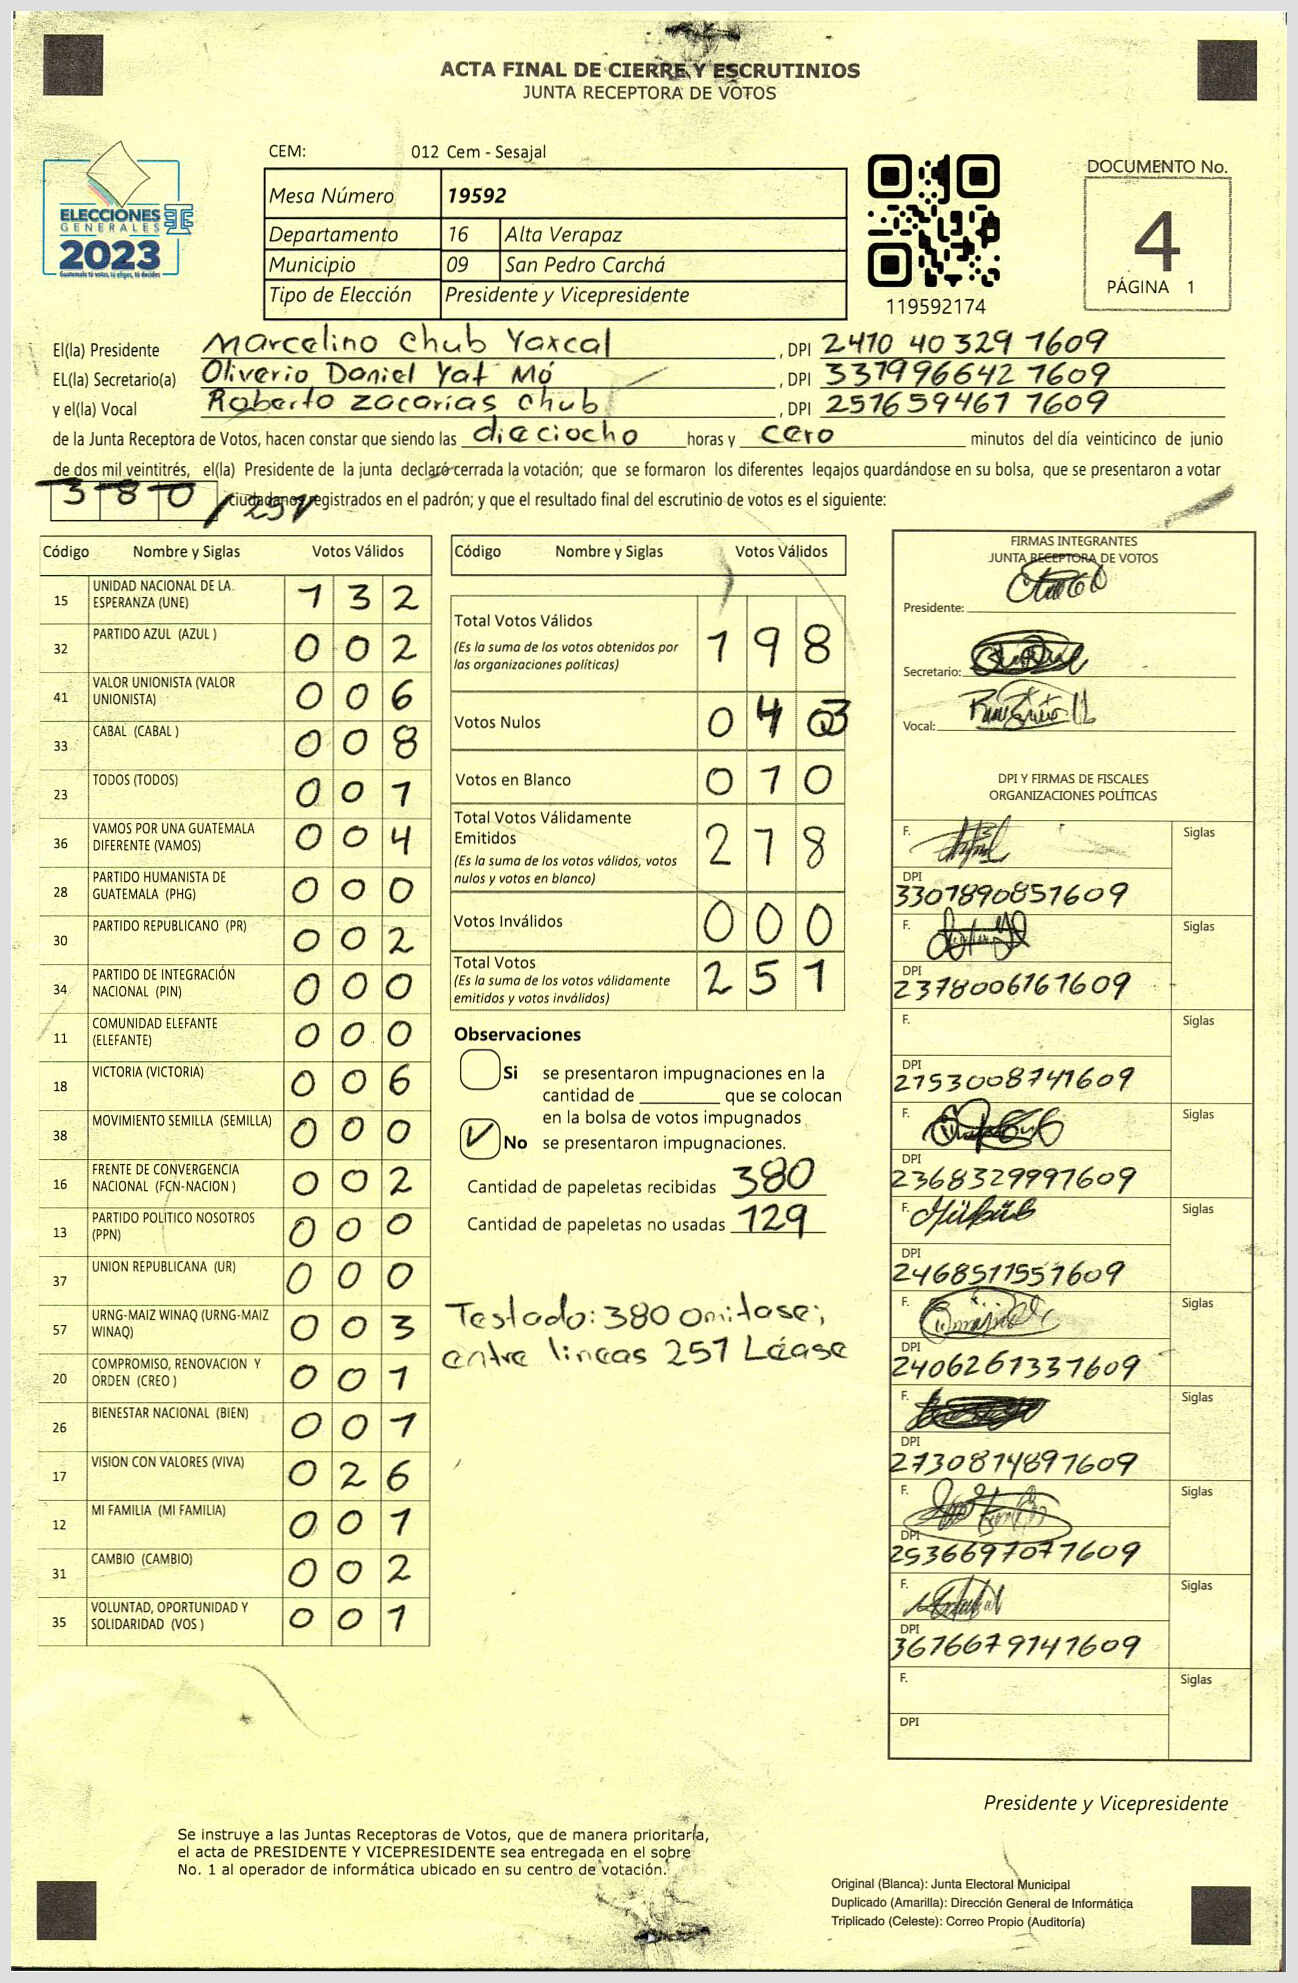 ACTA FINAL DE CIERRE Y ESCRUTINIOS
JUNTA RECEPTORA DE VOTOS
ELECCIONES
GENERALES
2023
Guatemala tú votas, tú eliges, tú decides
CEM: 012 Cem - Sesajal
Mesa Número 19592
Departamento 16 Alta Verapaz
Municipio 09 San Pedro Carchá
Tipo de Elección Presidente y Vicepresidente
119592174
DOCUMENTO No.
4
PÁGINA 1
El(la) Presidente Marcelino Chub Yaxcal , DPI 2410 40329 1609
EL(la) Secretario(a) Oliverio Daniel Yat Mó , DPI 337996642 1609
y el(la) Vocal Roberto zacarias chub , DPI 251659461 1609
de la Junta Receptora de Votos, hacen constar que siendo las dieciocho horas y cero minutos del día veinticinco de junio
de dos mil veintitrés, el(la) Presidente de la junta declaró cerrada la votación; que se formaron los diferentes legajos guardándose en su bolsa, que se presentaron a votar
380 / 251 ciudadanos registrados en el padrón; y que el resultado final del escrutinio de votos es el siguiente:
Código Nombre y Siglas Votos Válidos
15 UNIDAD NACIONAL DE LA ESPERANZA (UNE) 1 3 2
32 PARTIDO AZUL (AZUL ) 0 0 2
41 VALOR UNIONISTA (VALOR UNIONISTA) 0 0 6
33 CABAL (CABAL ) 0 0 8
23 TODOS (TODOS) 0 0 1
36 VAMOS POR UNA GUATEMALA DIFERENTE (VAMOS) 0 0 4
28 PARTIDO HUMANISTA DE GUATEMALA (PHG) 0 0 0
30 PARTIDO REPUBLICANO (PR) 0 0 2
34 PARTIDO DE INTEGRACIÓN NACIONAL (PIN) 0 0 0
11 COMUNIDAD ELEFANTE (ELEFANTE) 0 0 0
18 VICTORIA (VICTORIA) 0 0 6
38 MOVIMIENTO SEMILLA (SEMILLA) 0 0 0
16 FRENTE DE CONVERGENCIA NACIONAL (FCN-NACION ) 0 0 2
13 PARTIDO POLITICO NOSOTROS (PPN) 0 0 0
37 UNION REPUBLICANA (UR) 0 0 0
57 URNG-MAIZ WINAQ (URNG-MAIZ WINAQ) 0 0 3
20 COMPROMISO, RENOVACION Y ORDEN (CREO ) 0 0 1
26 BIENESTAR NACIONAL (BIEN) 0 0 1
17 VISION CON VALORES (VIVA) 0 2 6
12 MI FAMILIA (MI FAMILIA) 0 0 1
31 CAMBIO (CAMBIO) 0 0 2
35 VOLUNTAD, OPORTUNIDAD Y SOLIDARIDAD (VOS ) 0 0 1
Código Nombre y Siglas Votos Válidos
Total Votos Válidos 1 9 8
(Es la suma de los votos obtenidos por
las organizaciones políticas)
Votos Nulos 0 4 3
Votos en Blanco 0 1 0
Total Votos Válidamente
Emitidos 2 1 8
(Es la suma de los votos válidos, votos
nulos y votos en blanco)
Votos Inválidos 0 0 0
Total Votos 2 5 1
(Es la suma de los votos válidamente
emitidos y votos inválidos)
Observaciones
Si se presentaron impugnaciones en la
cantidad de que se colocan
en la bolsa de votos impugnados
No se presentaron impugnaciones.
Cantidad de papeletas recibidas 380
Cantidad de papeletas no usadas 129
Testado: 380 omitase;
entre lineas 251 Léase
FIRMAS INTEGRANTES
JUNTA RECEPTORA DE VOTOS
Presidente:
Secretario:
Vocal:
DPI Y FIRMAS DE FISCALES
ORGANIZACIONES POLÍTICAS
F. Siglas
DPI
3301890851609
F. Siglas
DPI
2378006161609
F. Siglas
DPI
2153008741609
F. Siglas
DPI
2368329991609
F. Siglas
DPI
2468511551609
F. Siglas
DPI
2406261331609
F. Siglas
DPI
2730814891609
F. Siglas
DPI
2536697071609
F. Siglas
DPI
3616679141609
F. Siglas
DPI
Presidente y Vicepresidente
Se instruye a las Juntas Receptoras de Votos, que de manera prioritaria,
el acta de PRESIDENTE Y VICEPRESIDENTE sea entregada en el sobre
No. 1 al operador de informática ubicado en su centro de votación.
Original (Blanca): Junta Electoral Municipal
Duplicado (Amarilla): Dirección General de Informática
Triplicado (Celeste): Correo Propio (Auditoría)